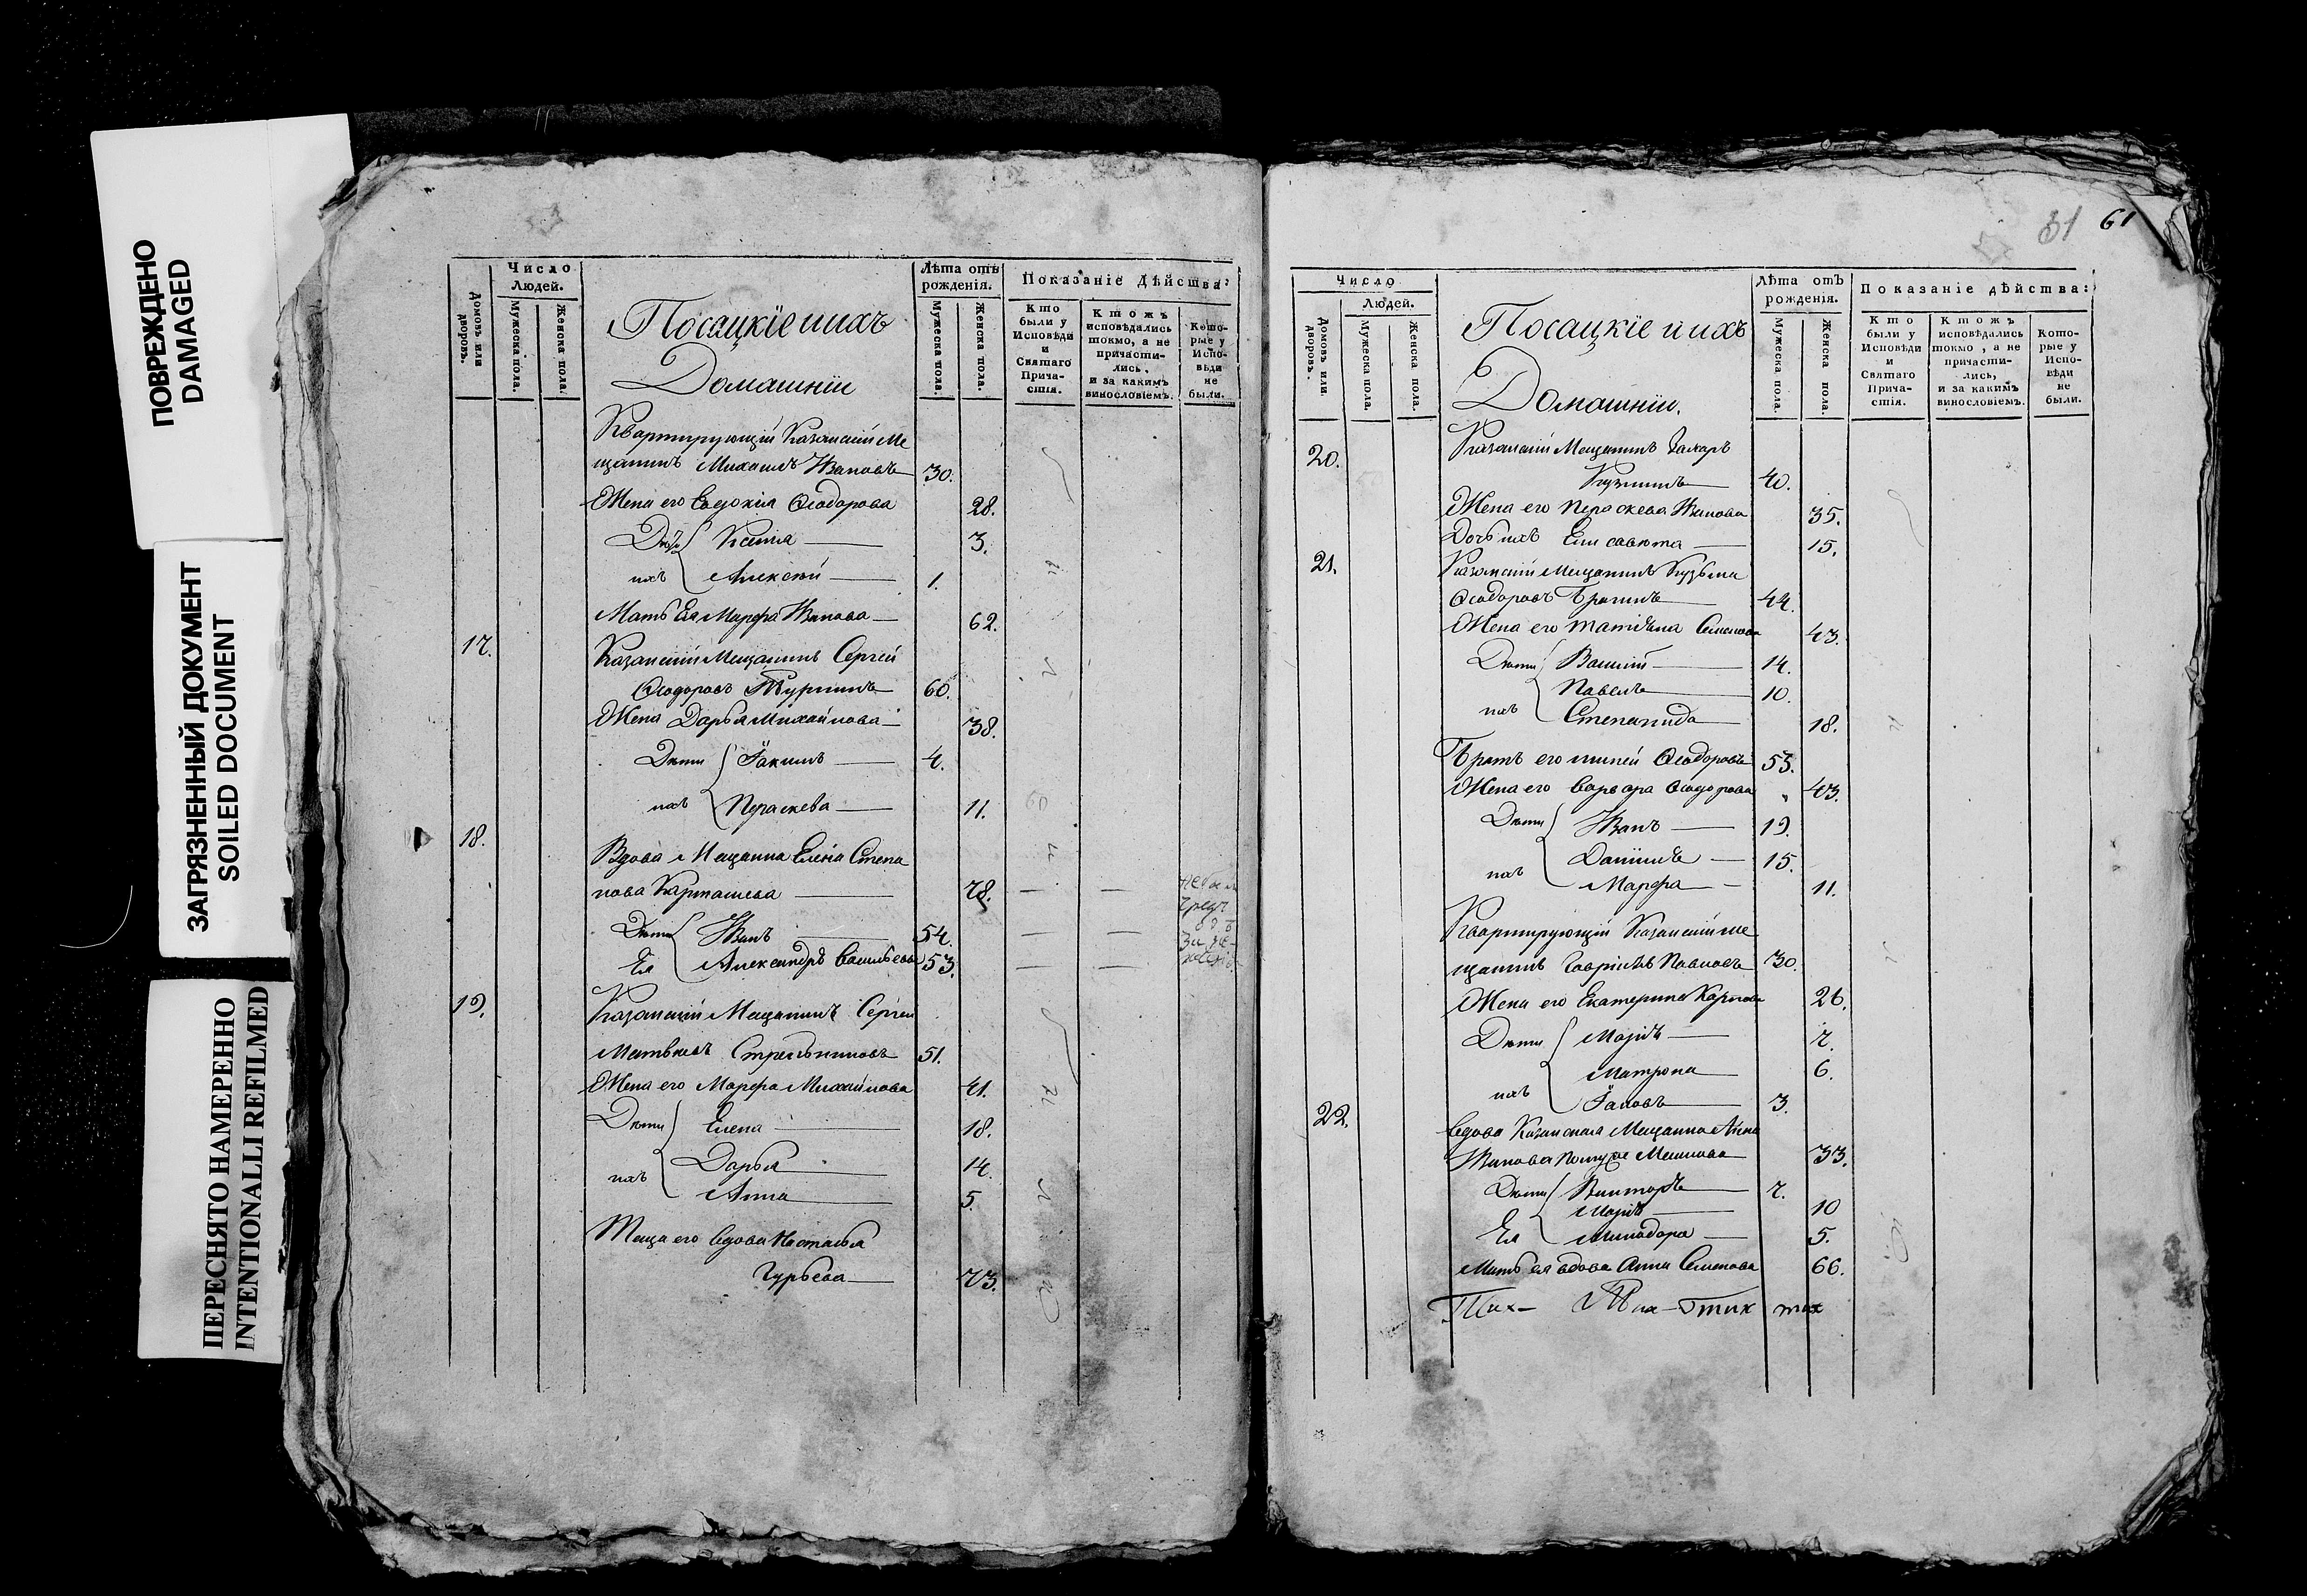 ПОВРЕЖДЕНО
DAMAGED
ЗАГРЯЗНЕННЫЙ ДОКУМЕНТ
SOILED DOCUMENT
ПЕРЕСНЯТО НАМЕРЕННО
INTENTIONALLI REFILMED
Домовъ или дворовъ.
Число Людей.
Мужеска пола.
Женска пола.
Посацкіе и ихъ
Домашніи
Лѣта отъ рожденія.
Мужеска пола.
Женска пола.
Показаніе Дѣйства:
Кто были у Исповѣди и Святаго Причастія.
Ктожъ исповѣдались токмо, а не причастились, и за какимъ винословіемъ.
Которые у Исповѣди не были.
Квартирующій Казанскій Ме
щанинъ Михаилъ Ивановъ 30.
Жена его Евдокія Ѳеодорова 28.
Дѣти Ксенія 3.
ихъ Алексѣй 1.
Мать Ея Марфа Иванова 62.
17. Казанскій Мещанинъ Сергей
Ѳеодоровъ 60.
Жена Дарья Михайлова 38.
Дѣти Іакимъ 4.
ихъ Пераскева 11.
18. Вдова Мещанка Елена Степа
нова Карташева 78.
Дѣти Иванъ 54.
Ея Александръ Васильевы 53.
19. Казанскій Мещанинъ Сергей
Матвѣевъ Стрельниковъ 51.
Жена его Марфа Михайлова 41.
Дѣти Елена 18.
ихъ Дарья 14.
Анна 5.
Теща его вдова Настасья
Гурьева 73.
31 61
Число
Домовъ или дворовъ.
Людей.
Мужеска пола.
Женска пола.
Посацкіе и ихъ
Домашніи.
Лѣта отъ рожденія.
Мужеска пола.
Женска пола.
Показаніе дѣйства:
Кто были у Исповѣди и Святаго Причастія.
Ктожъ исповѣдались токмо, а не причастились, и за какимъ винословіемъ.
Которые у Исповѣди не были.
20. Казанскій Мещанинъ Захаръ
Кузминъ 40.
Жена его Пераскева Иванова 35.
Дочь ихъ Елисавета 15.
21. Казанскій Мещанинъ Кузьма
Ѳеодоровъ Брагинъ 44.
Жена его Татіана Семенова 43.
Дѣти Василій 14.
Павелъ 10.
ихъ Степанида 18.
Братъ его Ѳеодоровъ 53.
Жена его Варвара Ѳеодорова 43.
Дѣти Иванъ 19.
Даніилъ 15.
ихъ Марфа 11.
Квартирующій Казанскій ме
щанинъ Гавріилъ Павловъ 30.
Жена его Екатерина Карпова 26.
Дѣти Марія 7.
Матрона 6.
ихъ Іаковъ 3.
22. Вдова Казанская Мещанка Анна
Иванова 33.
Дѣти Викторъ 7.
Марія 10
Ея Минодора 5.
Мать ея вдова Анна Семенова 66.